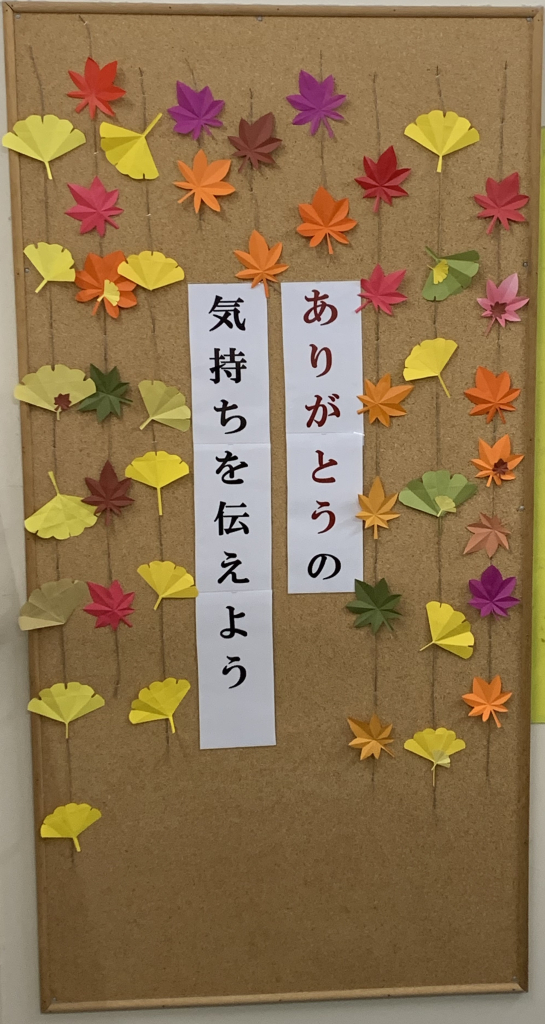 ありがとうの
気持ちを伝えよう